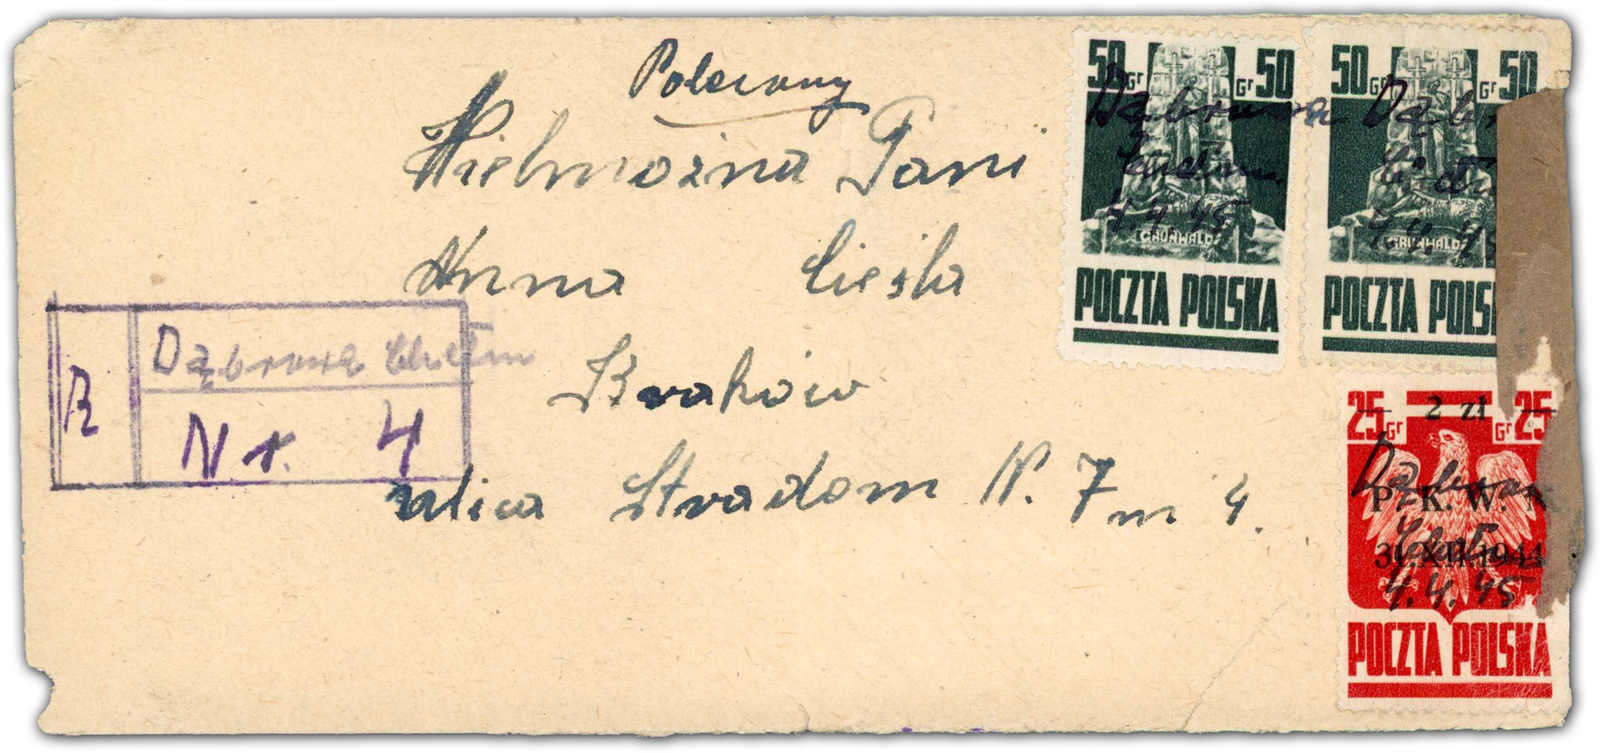 Polecony
Wielmożna Pani
Anna Cieśla
Kraków
ulica Stradom N. 7 m 4.
R
Dąbrowa Chełm
Nr. 4
50 Gr Gr 50
Dąbrowa
Chełm.
4.4.45
GRUNWALD
POCZTA POLSKA
50 Gr Gr 50
Dąbr
4.45
GRUNWALD
POCZTA POLS
25 Gr Gr 25
— 2 zł —
Dąbrowa
P. K. W. N
Chełm
31.XII.1944
4.4.45
POCZTA POLSKA